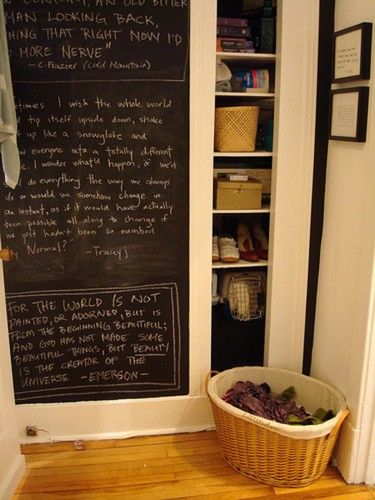 AN OLD BITTER
MAN LOOKING BACK,
THING THAT RIGHT NOW I'D
MORE NERVE"
- C. Frazier (Cold Mountain)
times I wish the whole world
tip itself upside down, shake
up like a snowglobe and
everyone into a totally different
. I wonder what'd happen, if we'd
do everything the way we always
do or would we somehow change in
an instant, as if it would have actually
been possible all along to change if
we just hadn't been so numbed
Normal?" - Tracy J
FOR THE WORLD IS NOT
PAINTED, OR ADORNED, BUT IS
FROM THE BEGINNING BEAUTIFUL;
AND GOD HAS NOT MADE SOME
BEAUTIFUL THINGS, BUT BEAUTY
IS THE CREATOR OF THE
UNIVERSE - EMERSON -